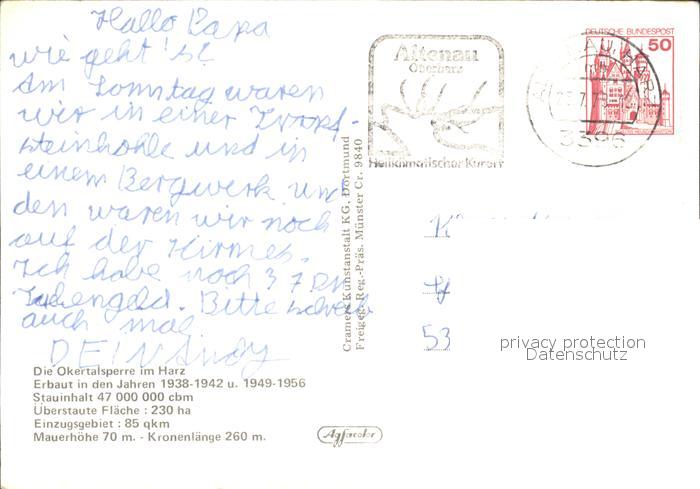 Hallo Papa
wie geht's?
Am Sonntag waren
wir in einer Tropf-
steinhöhle und in
einem Bergwerk und
den waren wir noch
auf der Kirmes.
Ich habe noch 37 DM
Bitte schreib
auch mal
DEIN Andy
Die Okertalsperre im Harz
Erbaut in den Jahren 1938-1942 u. 1949-1956
Stauinhalt 47 000 000 cbm
Überstaute Fläche : 230 ha
Einzugsgebiet : 85 qkm
Mauerhöhe 70 m. - Kronenlänge 260 m.
Cramers Kunstanstalt KG, Dortmund
Freigeg. Reg.-Präs. Münster Cr. 9840
Agfacolor
Altenau
Oberharz
Heilklimatischer Kurort
3396
DEUTSCHE BUNDESPOST
50
53
privacy protection
Datenschutz